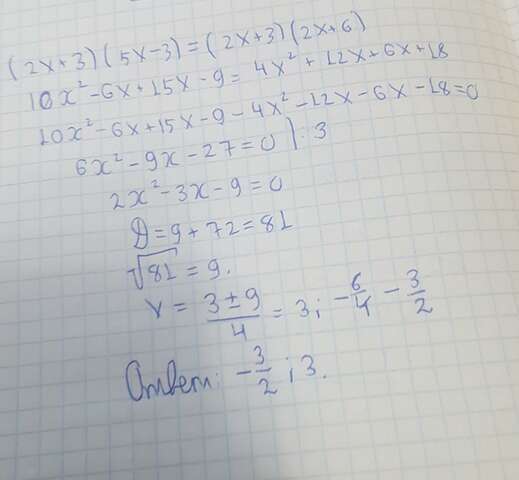 (2x+3)(5x-3)=(2x+3)(2x+6)
10x²-6x+15x-9=4x²+12x+6x+18
10x²-6x+15x-9-4x²-12x-6x-18=0
6x²-9x-27=0 |:3
2x²-3x-9=0
D=9+72=81
√81=9.
x=(3±9)/4=3; -6/4 -3/2
Ответ: -3/2; 3.